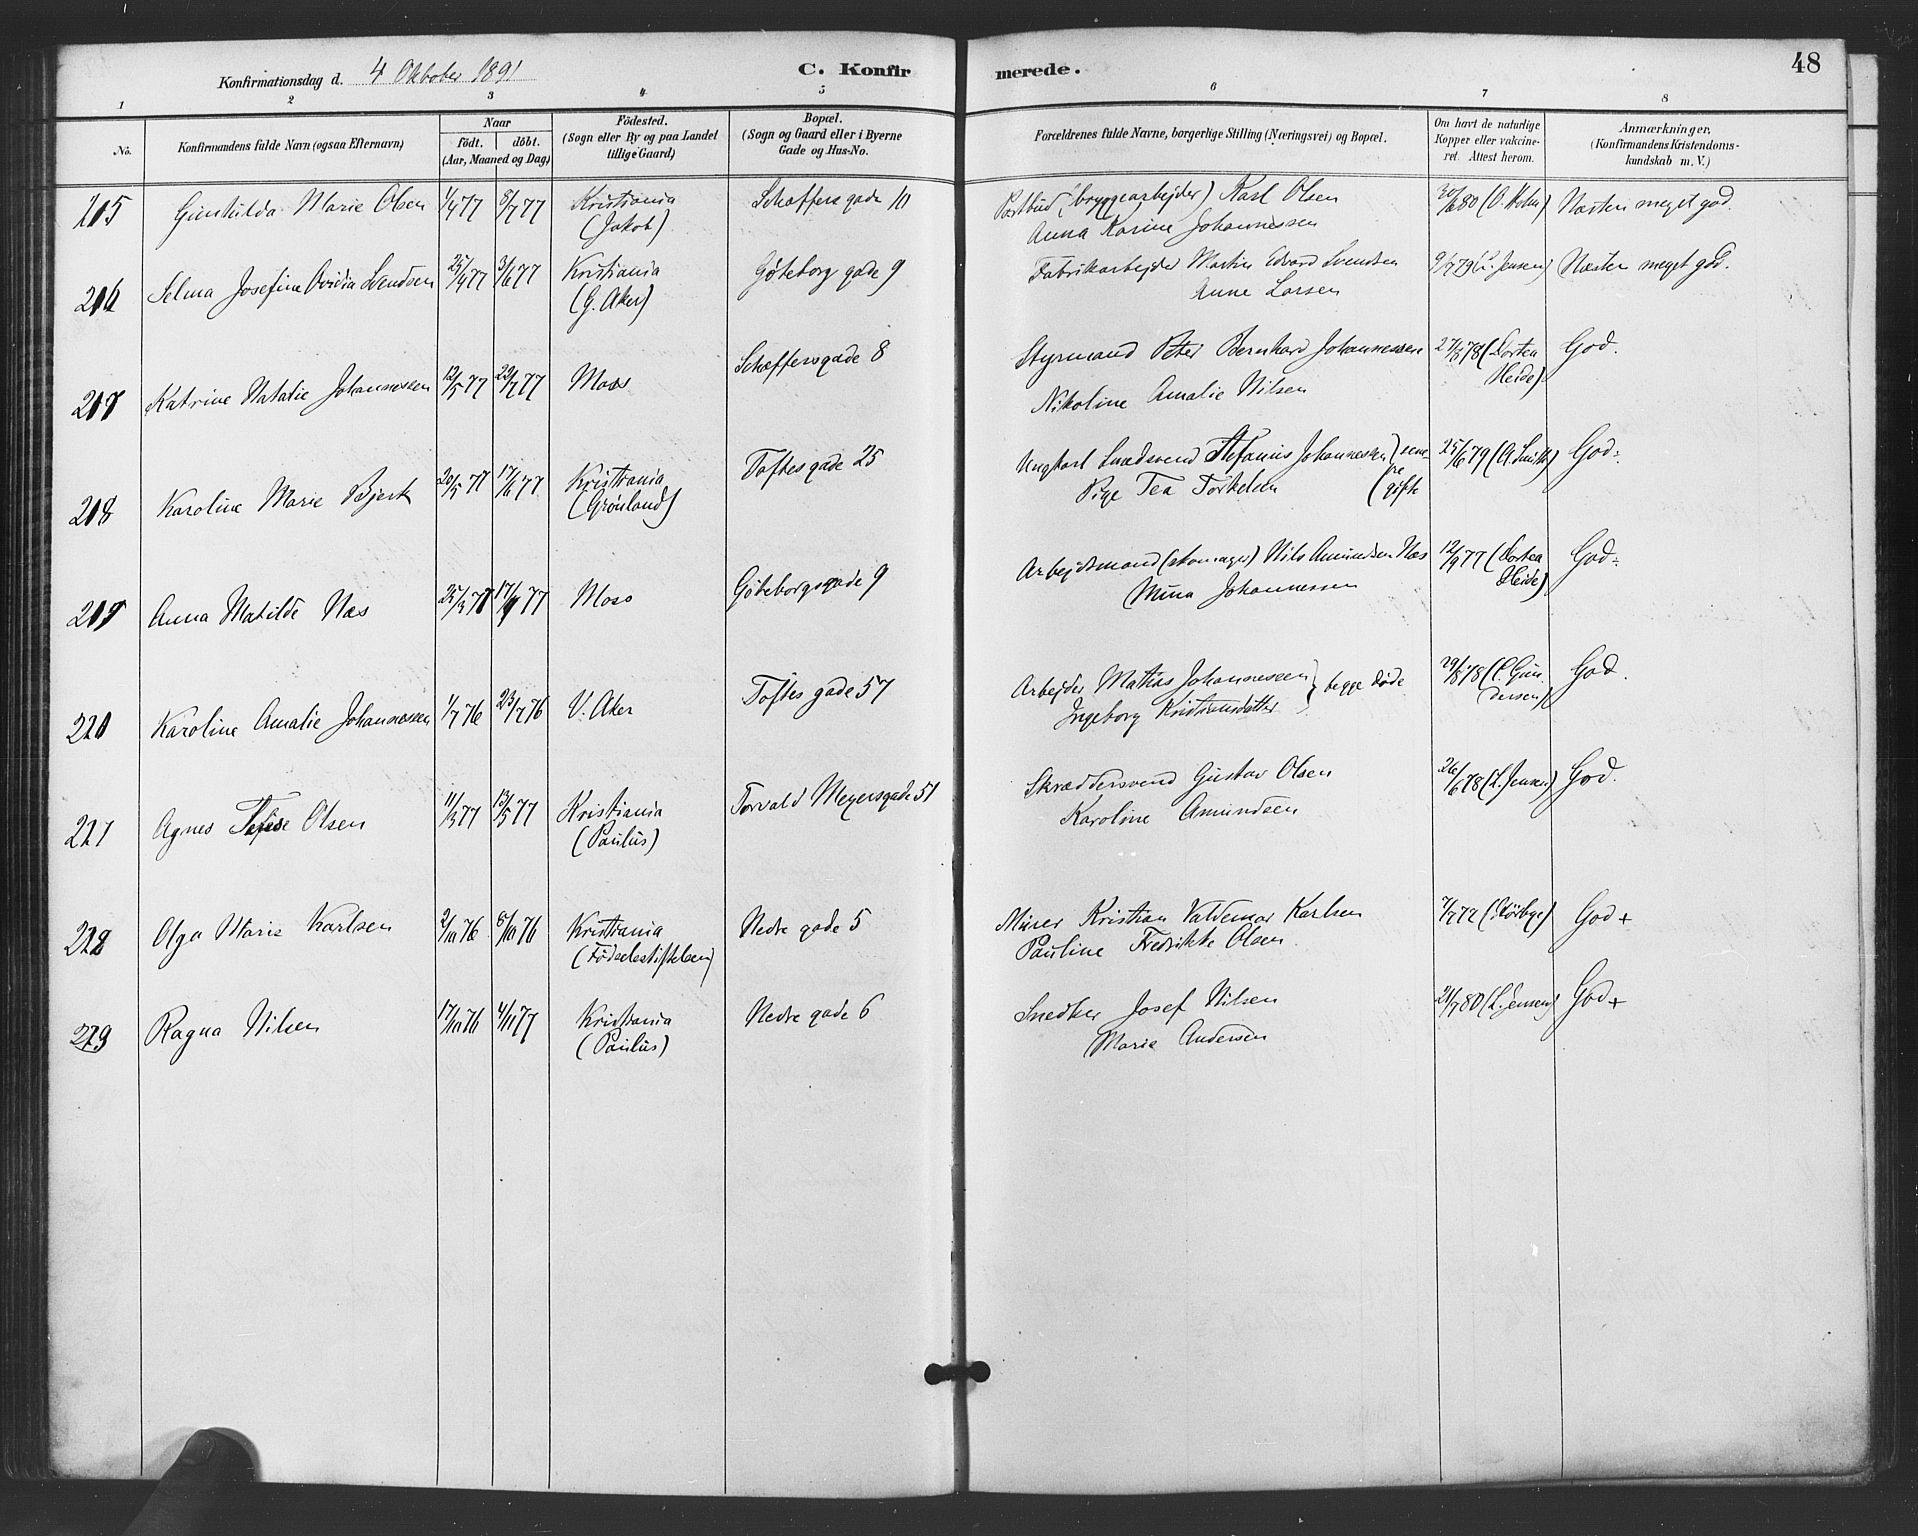 48
Konfirmationsdag d. 4 Oktober 1891
C. Konfirmerede.
1 2 3 4 5 6 7 8
No.
Konfirmandens fulde Navn (ogsaa Efternavn)
Naar
født. døbt.
(Aar, Maaned og Dag)
Fødested.
(Sogn eller By og paa Landet
tillige Gaard)
Bopæl.
(Sogn og Gaard eller i Byerne
Gade og Hus-No.
Forældrenes fulde Navne, borgerlige Stilling (Næringsvei) og Bopæl.
Om havt de naturlige
Kopper eller vakcine-
ret. Attest herom.
Anmærkninger.
(Konfirmandens Kristendoms-
kundskab m. V.)
215 Gunhilda Marie Olsen 1/4 77 8/7 77 Kristiania Schæffersgade 10 Postbud (bryggearbejder) Karl Olsen 30/6 80 (O. Holm) Næsten meget god.
(Jakob) Anna Karine Johannessen
216 Selma Josefine Ovidia Svendsen 25/4 77 3/6 77 Kristiania Göteborggade 9 Fabrikarbejder Martin Edvard Svendsen 9/7 79 (L. Jensen) Næsten meget god.
(G. Aker) Anne Larsen
217 Katrine Natalie Johannessen 12/5 77 29/7 77 Moss Schæffersgade 8 Styrmand Peter Bernhard Johannessen 27/8 78 (Dortea God.
Nikoline Amalie Nilsen Heide)
218 Karoline Marie Bjerk 20/5 77 17/6 77 Kristiania Toftesgade 25 Ungkarl Snedsvend Stefanus Johannessen) sene- 25/6 79 (A. Smith) God÷
(Grønland) Pige Tea Torkelsen (re gifte
219 Anna Matilde Næs Moss Göteborgsgade 9 Arbejdsmand (skomager) Nils Amundsen Næs 12/9 77 (Dortea God÷
Mina Johannessen Heide)
Karoline Amalie Johannessen 1/7 76 23/7 76 V. Aker Toftesgade 57 Arbejder Mathias Johannessen } begge døde 29/8 78 (C. Gun- God.
Ingeborg Kristiansdatter dersen)
Agnes Olsen 11/3 77 13/5 77 Kristiania Torvald Meyersgade 51 Skræddersvend Gustav Olsen 26/6 78 (L. Jensen) God.
(Paulus) Karoline Amundsen
Olga Marie Karlsen 2/10 76 8/10 76 Kristiania Nedregade 5 Murer Kristian Valdemar Karlsen 7/7 72 (Dørbye) God +
(Fødselsstiftelsen) Pauline Fredrikke Olsen
Ragna Nilsen Kristiania Nedregade 6 Snedker Josef Nilsen 21/7 80 (L. Jensen) God +
(Paulus) Marie Andersen